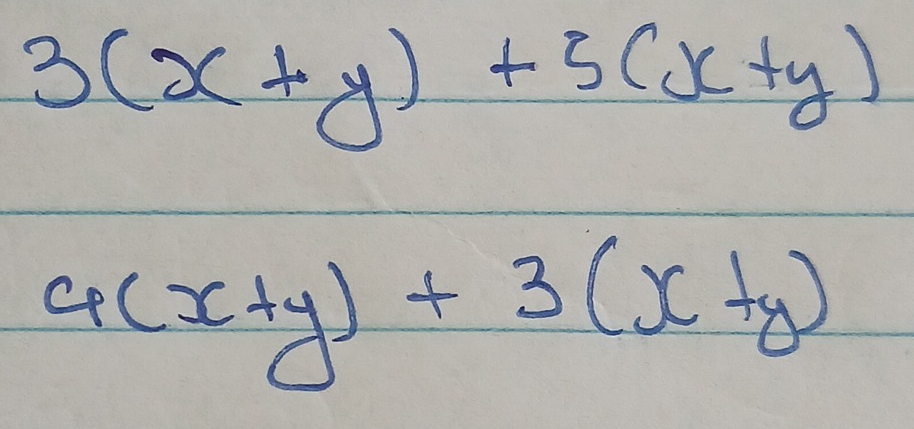 3(x+y) +5(x+y)
4(x+y) + 3(x+y)